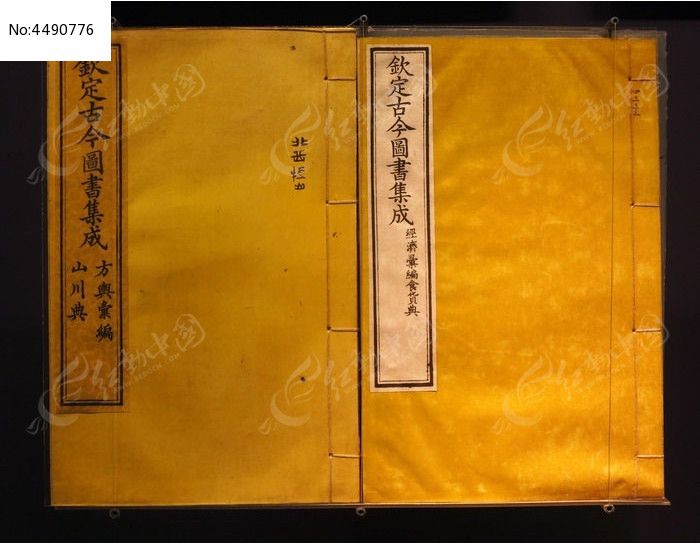 No:4490776
欽定古今圖書集成
方輿彙編
山川典
北岳恆山
欽定古今圖書集成
經濟彙編食貨典
红动中国